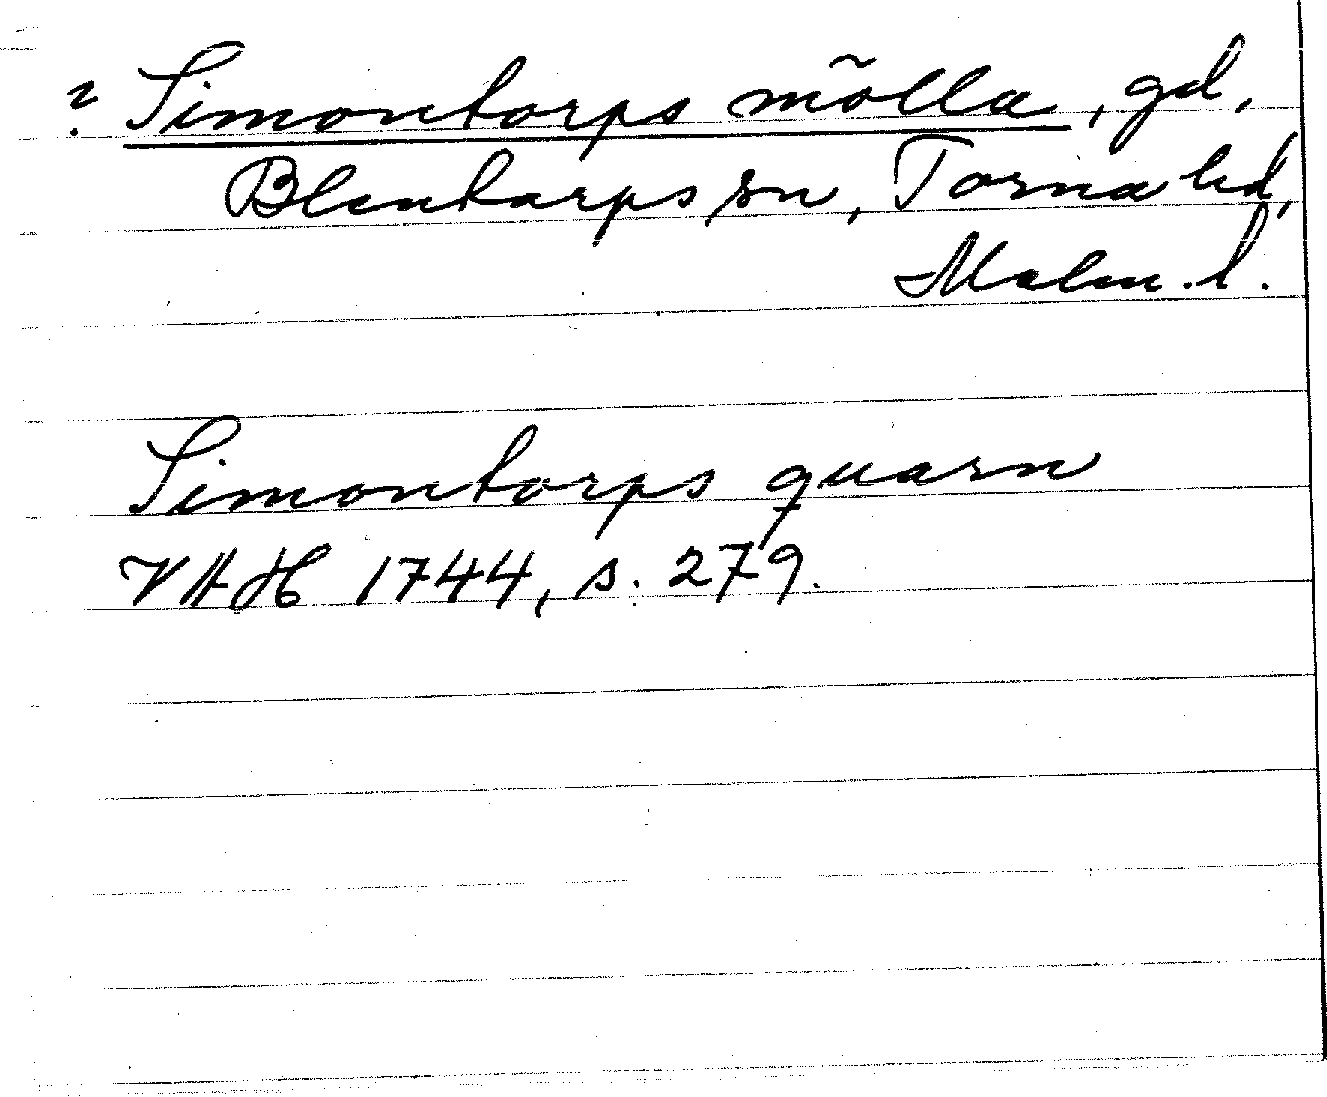 ? Simontorps mölla, gd,
Blentarps sn, Torna hd,
Malm. l.
Simontorps quarn
VAH 1744, s. 279.